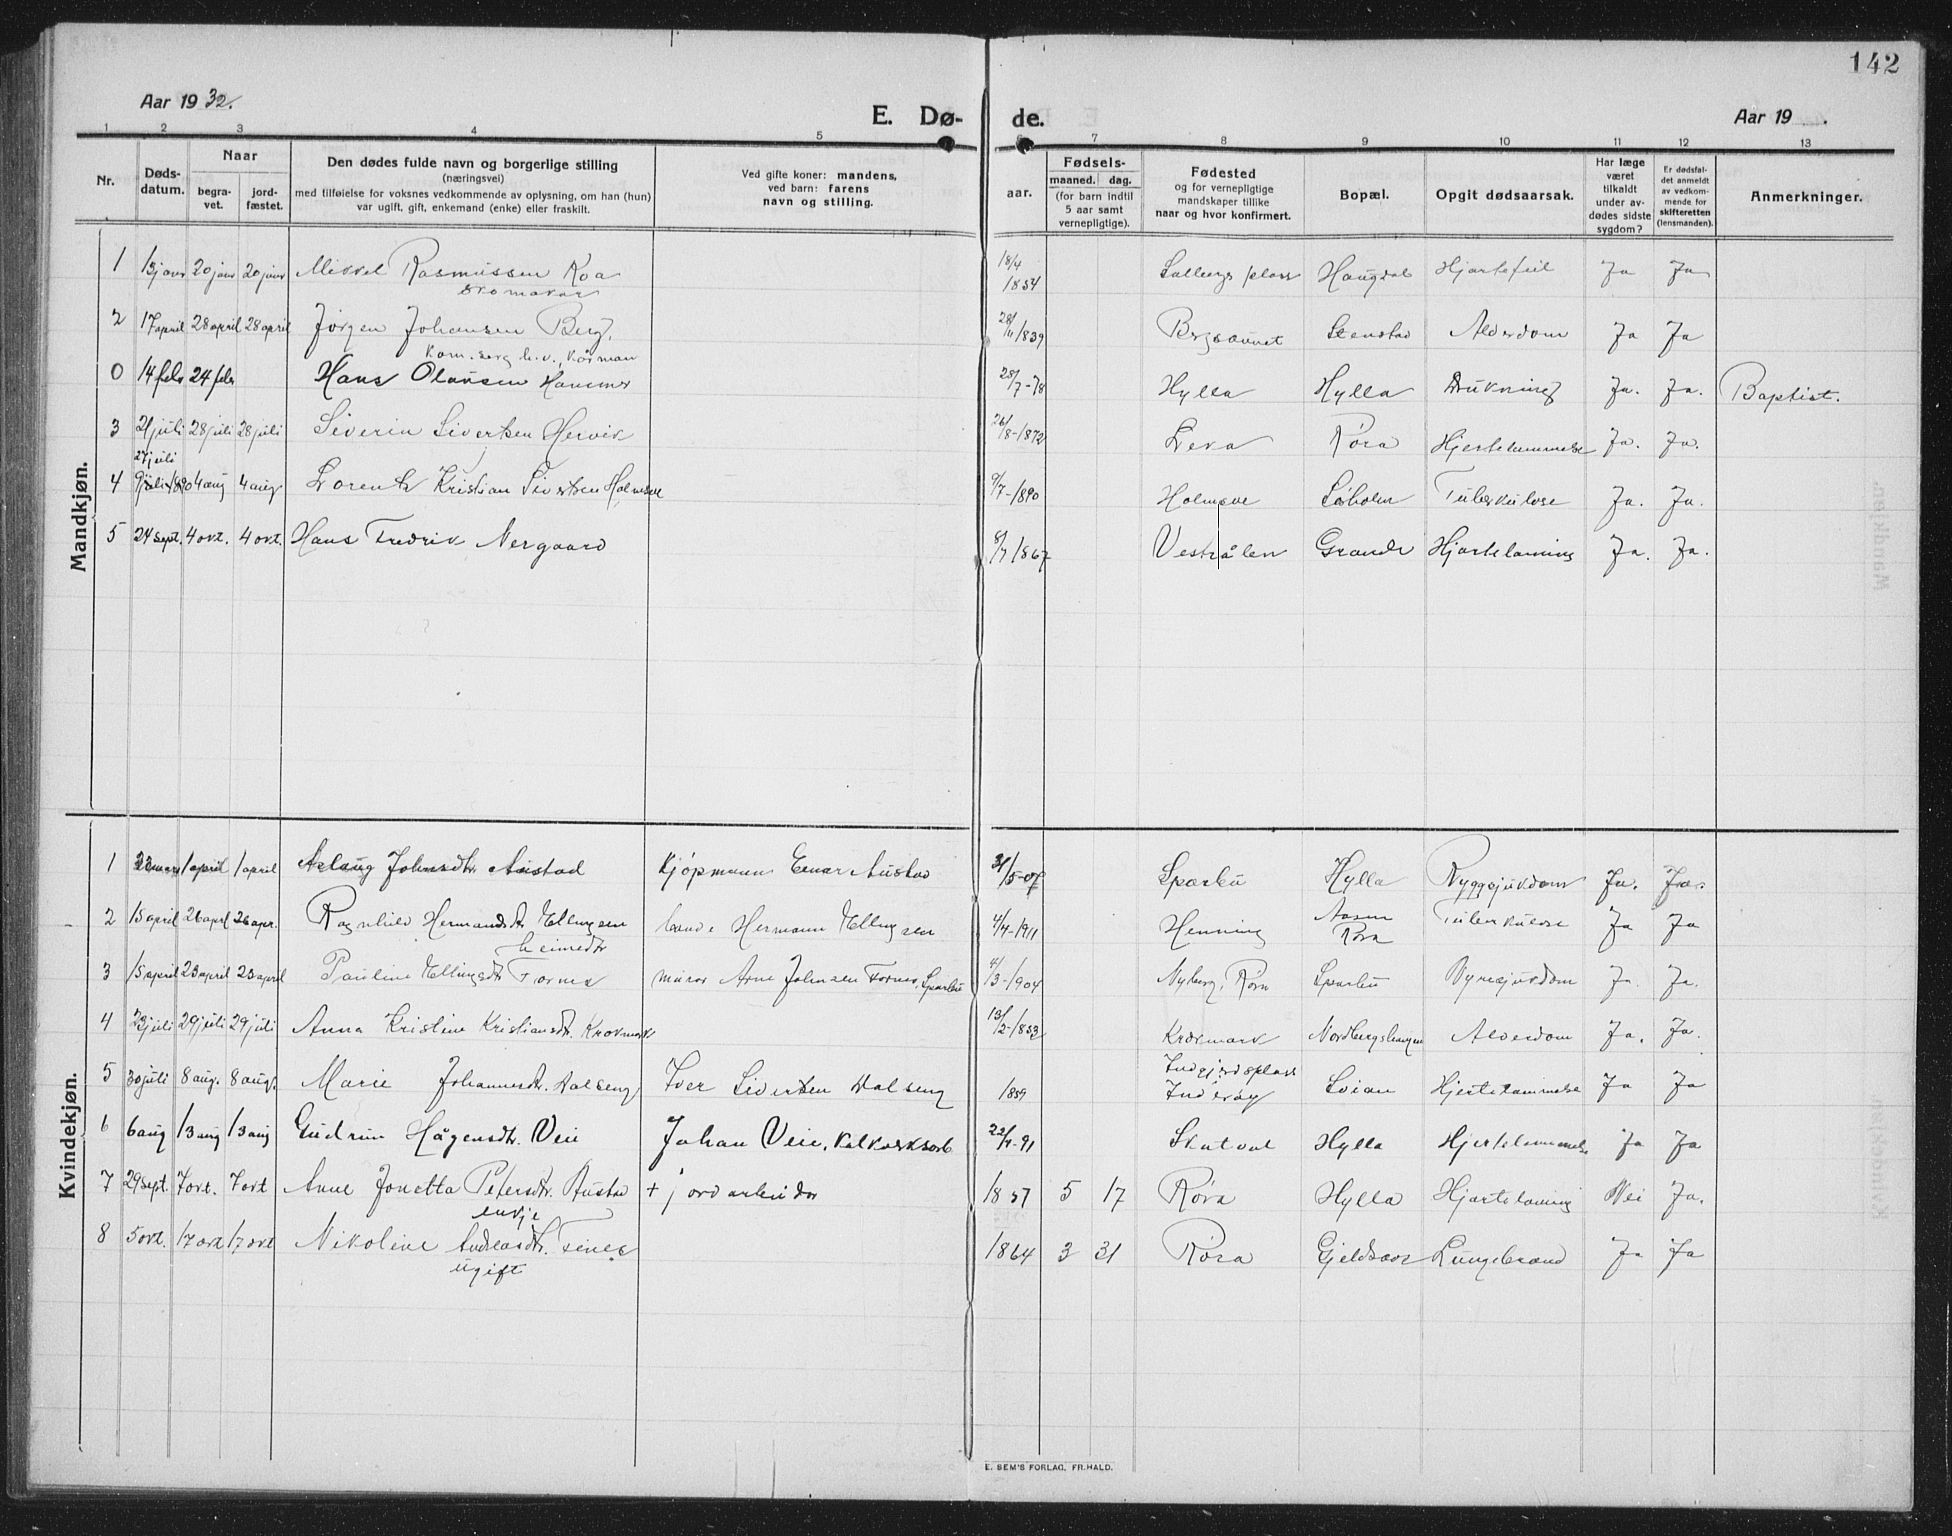 142
Aar 1932.
E. Dø-
de.
Aar 19 .
1 2 3 4 5 7 8 9 10 11 12 13
Nr.
Døds-
datum.
Naar
begra-
vet.
jord-
fæstet.
Den dødes fulde navn og borgerlige stilling
(næringsvei)
med tilføielse for voksnes vedkommende av oplysning, om han (hun)
var ugift, gift, enkemand (enke) eller fraskilt.
Ved gifte koner: mandens,
ved barn: farens
navn og stilling.
aar.
Fødsels-
maaned. dag.
(for barn indtil
5 aar samt
vernepligtige).
Fødested
og for vernepligtige
mandskaper tillike
naar og hvor konfirmert.
Bopæl.
Opgit dødsaarsak.
Har læge
været
tilkaldt
under av-
dødes sidste
sygdom?
Er dødsfal-
det anmeldt
av vedkom-
mende for
skifteretten
(lensmanden).
Anmerkninger.
Mandkjøn.
1 13 janr 20 janr 20 janr Mikkel Rasmussen Koa 18/4 1854 Salbergs plass Haugdal Hjartefeil Ja Ja
skomakar
2 17 april 28 april 28 april Jørgen Johansen Berg, 28/11 1839 Bergsaunet Stenstad Alderdom Ja Ja
kårman
0 14 febr 24 febr Hans Olausen Hammer 28/7-78 Hylla Hylla Drukning Ja. Ja. Baptist.
3 21 juli 28 juli 28 juli Severin Sivertsen Hervik 26/8-1872 Leka Røra Hjertelammelse Ja. Ja.
27 juli
4 9 juli 1890 4 aug 4 aug Lorents Kristian Sivertsen Holmsve 9/7-1890 Holmsve Søholm Tuberkulose Ja. Ja.
5 24 sept. 4 okt. 4 okt. Hans Fredrik Nergaard 8/7 1867 Vestrålen Grande Hjartelaming Ja. Ja.
Kvindekjøn.
1 22 mars 1 april 1 april Aslaug Johnsdtr. Austad Kjøpmann Einar Austad 31/5-07 Sparbu Hylla Ryggsjukdom Ja. Ja.
2 15 april 26 april 26 apr. Ragnhild Hermandsdtr Ellingsen Hermann Ellingsen 4/4-1911 Henning Aasen Røra Tuberkulose Ja Ja
heimedtr
3 15 april 23 april 23 april Pauline Ellingsdtr Fornes murar Arne Johnsen Fornes, Sparbu 4/3-1904 Nyberg, Røra Sparbu Nyresjukdom Ja. Ja.
4 23 juli 29 juli 29 juli Anna Kristine Kristiansdtr. Krokmark 13/2-1853 Krokmark Nordbergshaugen Alderdom Ja. Ja.
5 30 juli 8 aug. 8 aug. Marie Johannesdtr. Dalseng Iver Sivertsen Dalseng 1859 Inderøy Svian Hjertelammelse Ja Ja
6 6 aug 13 aug 13 aug Gudrun Hågensdtr. Veie Johan Veie, kalkverksarb 22/4-91 Skatval Hylla Hjertelammelse Ja Ja
7 29 sept. 7 okt. 7 okt Anne Jonetta Petersdtr. Austad + jordarbeidar 1857 5 17 Røra Hylla Hjartelaming Nei Ja.
enkje
8 5 okt. 17 okt 17 okt Nikoline Andreasdtr. Tines 1864 3 31 Røra Gjeldsaas Lungebrand Ja Ja
ugift
E. SEM'S FORLAG, FR.HALD.